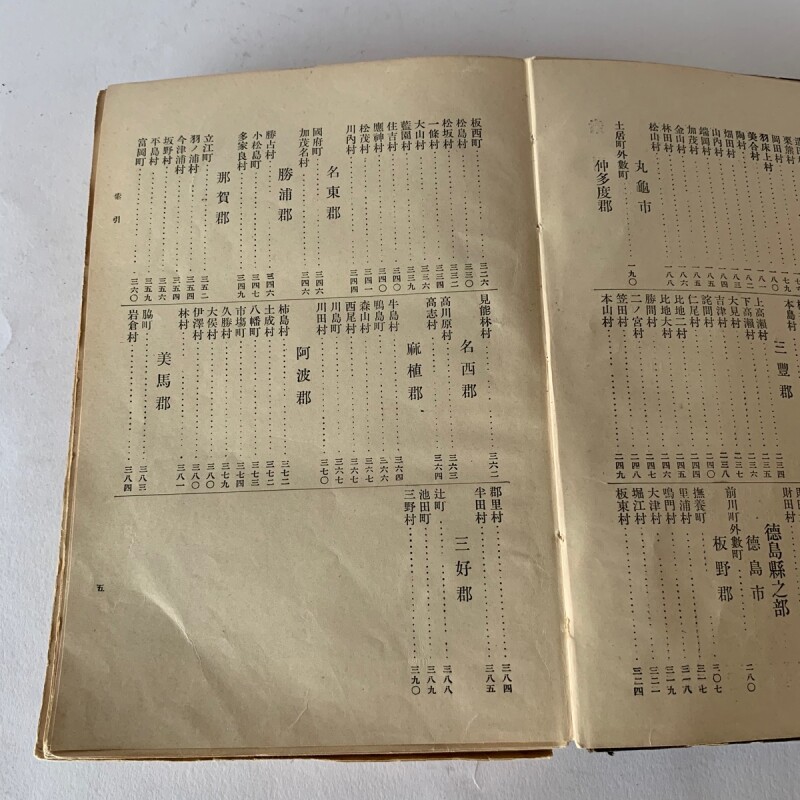 栗熊村
岡田村
羽床上村
美合村
陶村
畑田村
山内村
端岡村
加茂村
金山村
林田村
松山村
丸龜市
土居町外數町 一九〇
仲多度郡
本島村
三豐郡
上高瀬村
下高瀬村
大見村
吉津村
詫間村
仁尾村
比地二村
比地大村
勝間村
二ノ宮村
笠田村
本山村 二四九
財田村
德島縣之部
德島市
前川町外數町 二八〇
板野郡
撫養町 三〇七
里浦村 三一七
鳴門村 三一八
大津村 三一九
堀江村 三二一
板東村 三二四
板西町 三二六
松島村 三三〇
松坂村 三三二
一條村 三三四
大山村 三三六
藍園村 三三九
住吉村 三四〇
應神村 三四一
松茂村 三四四
川內村 三四四
名東郡
國府町 三四六
加茂名村 三四六
勝浦郡
勝占村 三四六
小松島町 三四七
多家良村 三四九
那賀郡
立江町 三五二
羽ノ浦村 三五四
今津浦村 三五四
坂野村 三五六
平島村 三五九
富岡町 三六〇
見能林村 三六二
名西郡
高川原村 三六三
高志村 三六四
麻植郡
牛島村 三六四
鴨島町 三六六
森山村 三六七
西尾村 三六七
川島町 三六七
川田村 三七〇
阿波郡
柿島村 三七二
土成村 三七二
八幡町 三七三
市場町 三七四
久勝村 三七九
大俣村 三八〇
伊澤村 三八〇
林村 三八一
美馬郡
脇町 三八三
岩倉村 三八四
郡里村 三八四
半田村 三八五
三好郡
辻町 三八八
池田町 三八九
三野村 三九〇
索引
五